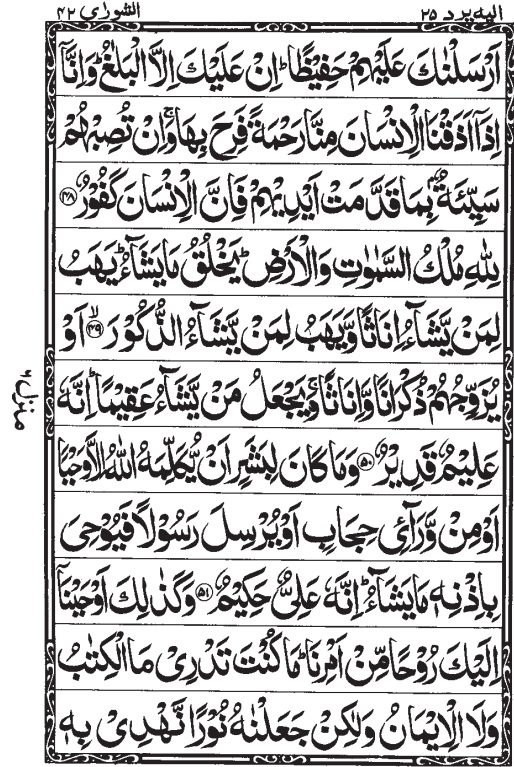 الیه یرد ۲۵
الشورٰی ۴۲
اَرْسَلْنٰكَ عَلَيْهِمْ حَفِيْظًا ؕ اِنْ عَلَيْكَ اِلَّا الْبَلٰغُ ؕ وَاِنَّاۤ
اِذَاۤ اَذَقْنَا الْاِنْسَانَ مِنَّا رَحْمَةً فَرِحَ بِهَا ۚ وَاِنْ تُصِبْهُمْ
سَيِّئَةٌۢ بِمَا قَدَّمَتْ اَيْدِيْهِمْ فَاِنَّ الْاِنْسَانَ كَفُوْرٌ ﴿۴۸﴾
لِلّٰهِ مُلْكُ السَّمٰوٰتِ وَالْاَرْضِ ؕ يَخْلُقُ مَا يَشَآءُ ؕ يَهَبُ
لِمَنْ يَّشَآءُ اِنَاثًا وَّيَهَبُ لِمَنْ يَّشَآءُ الذُّكُوْرَ ﴿ۙ۴۹﴾ اَوْ
يُزَوِّجُهُمْ ذُكْرَانًا وَّاِنَاثًا ۚ وَيَجْعَلُ مَنْ يَّشَآءُ عَقِيْمًا ؕ اِنَّهٗ
عَلِيْمٌ قَدِيْرٌ ﴿۵۰﴾ وَمَا كَانَ لِبَشَرٍ اَنْ يُّكَلِّمَهُ اللّٰهُ اِلَّا وَحْيًا
اَوْ مِنْ وَّرَآئِ حِجَابٍ اَوْ يُرْسِلَ رَسُوْلًا فَيُوْحِيَ
بِاِذْنِهٖ مَا يَشَآءُ ؕ اِنَّهٗ عَلِيٌّ حَكِيْمٌ ﴿۵۱﴾ وَكَذٰلِكَ اَوْحَيْنَاۤ
اِلَيْكَ رُوْحًا مِّنْ اَمْرِنَا ؕ مَا كُنْتَ تَدْرِيْ مَا الْكِتٰبُ
وَلَا الْاِيْمَانُ وَلٰكِنْ جَعَلْنٰهُ نُوْرًا نَّهْدِيْ بِهٖ
منزل ۶